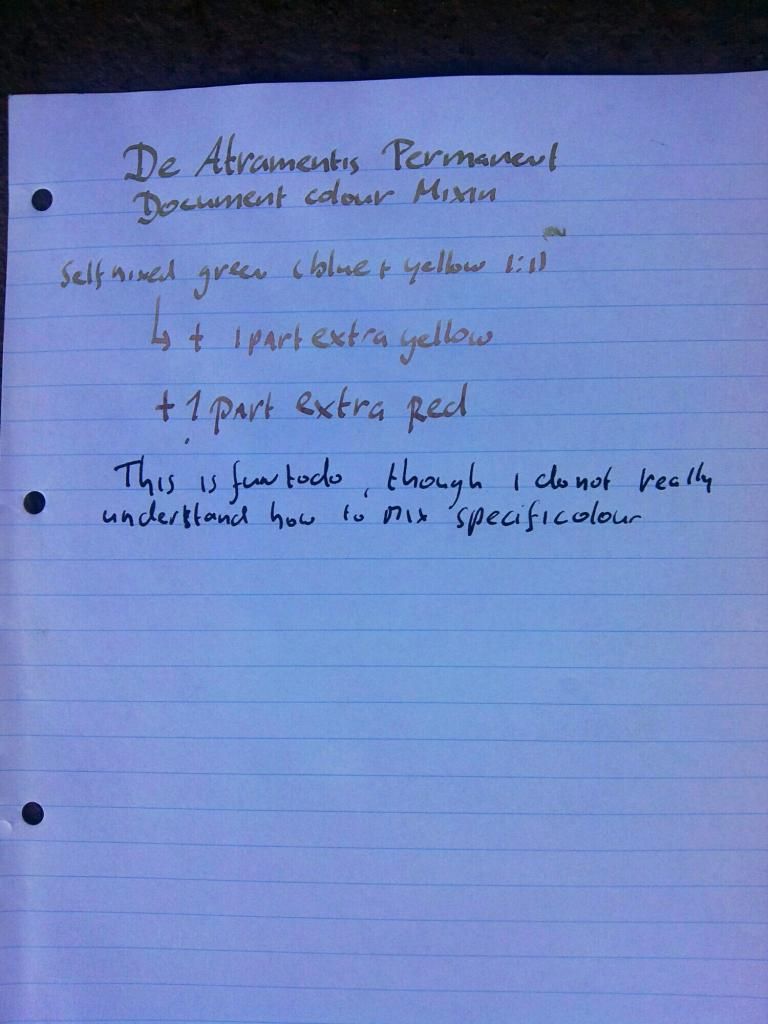 De Atramentis Permanent
Document colour Mixin
Self mixed green (blue + yellow 1:1)
↳ + 1 part extra yellow
+ 1 part extra Red
This is fun to do, though I do not really
understand how to mix specific colour